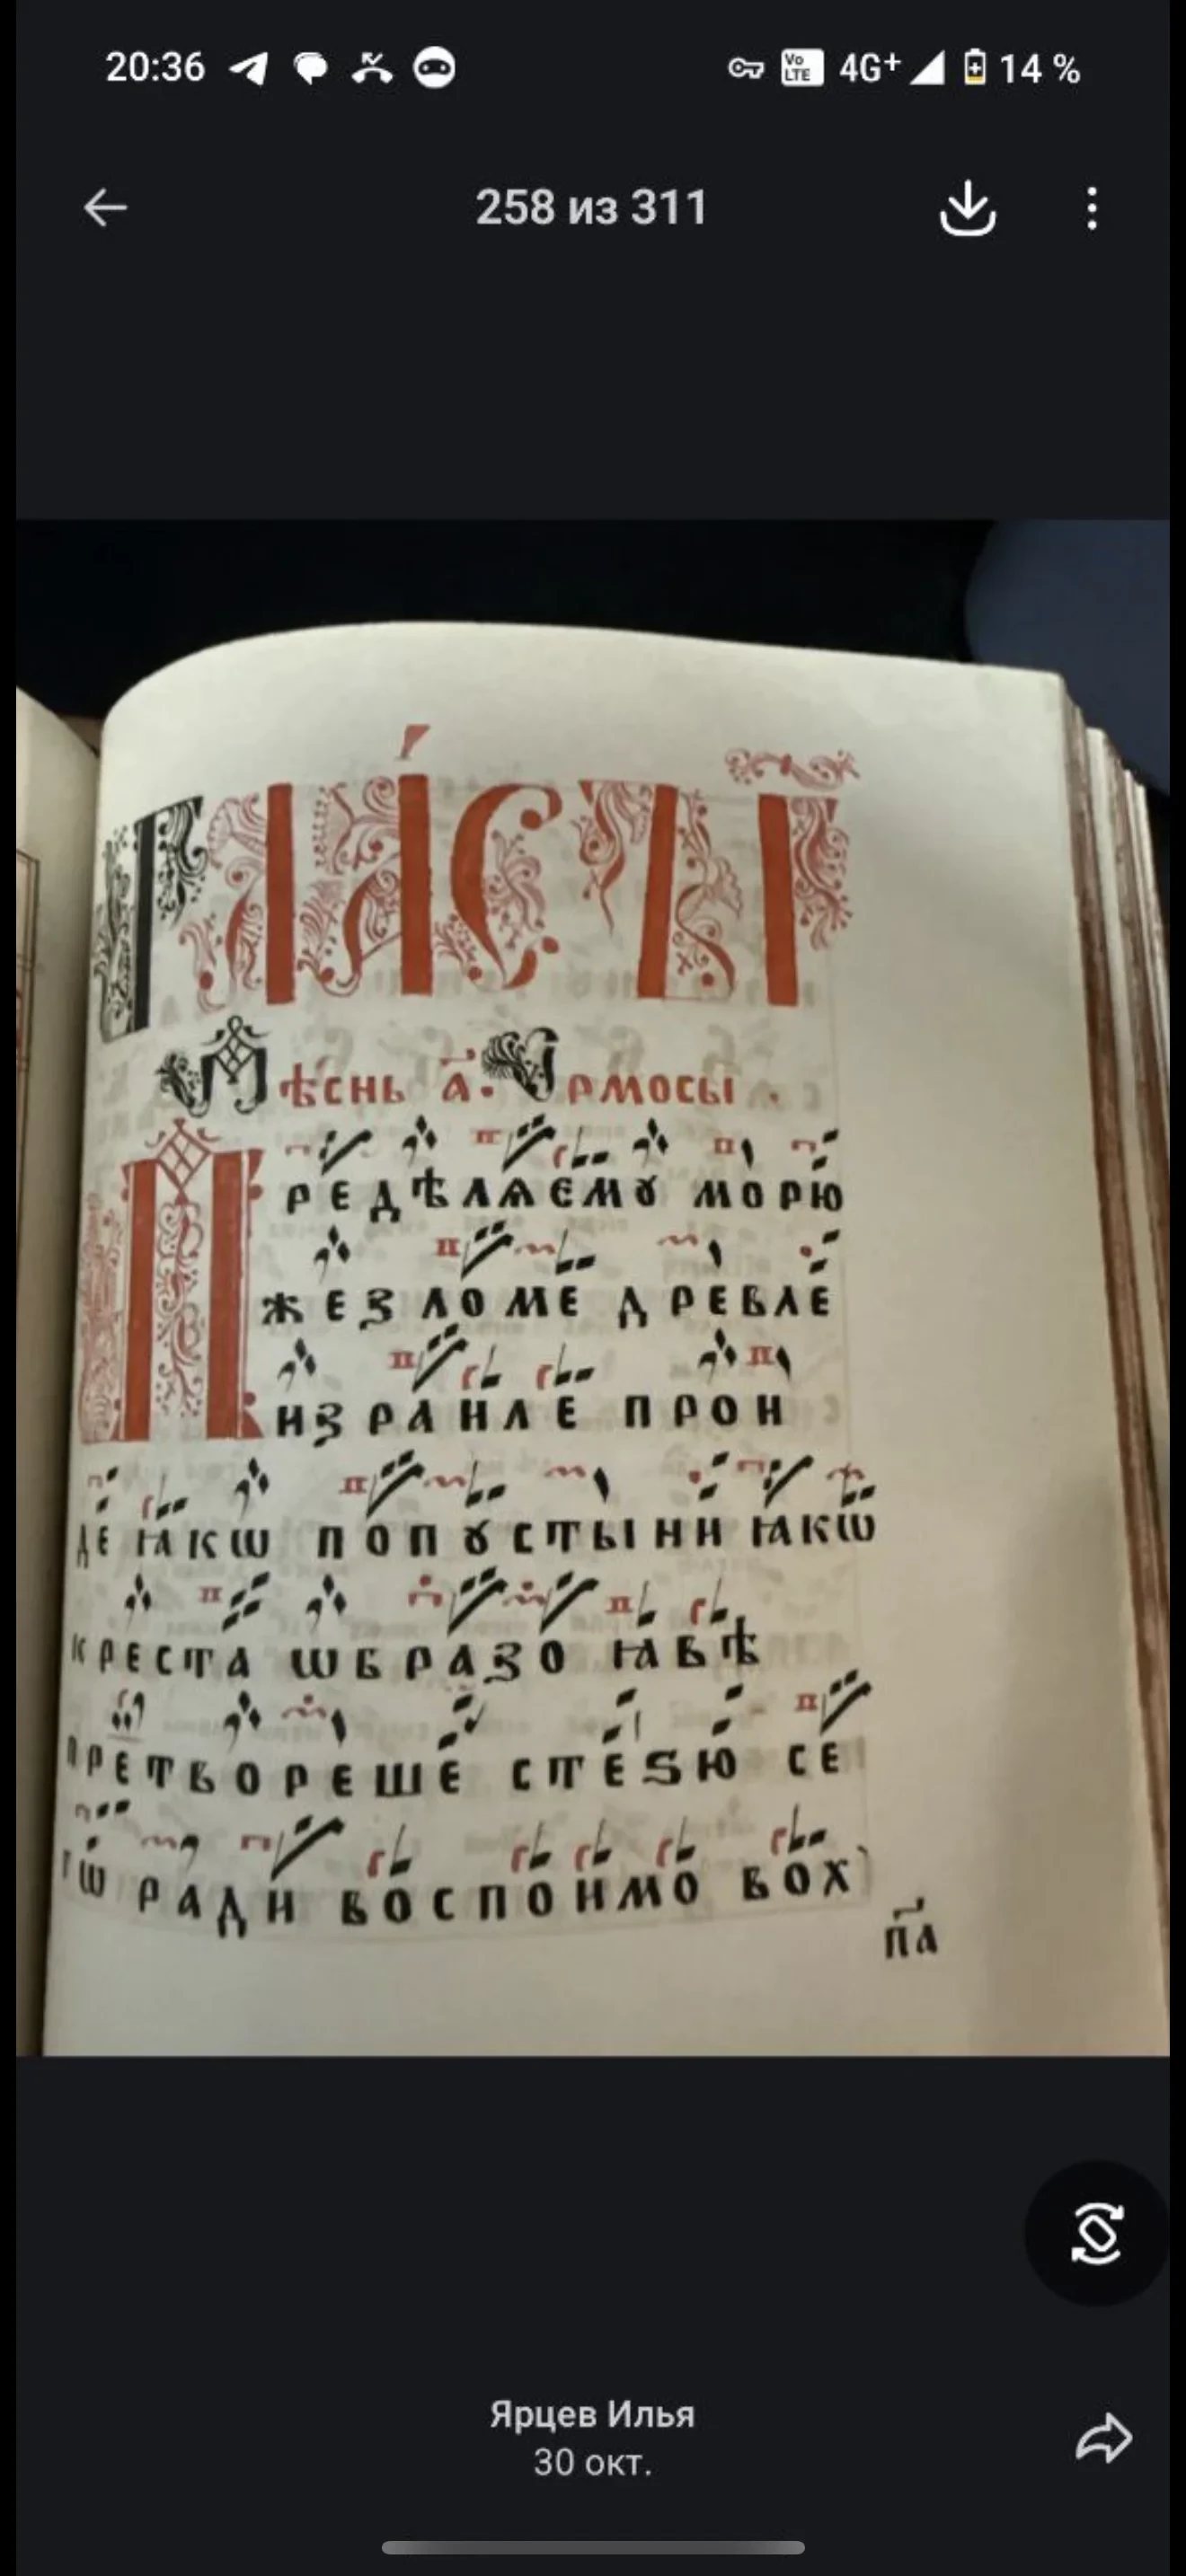 20:36 Vo LTE 4G+ 14 %
258 из 311
Гла́съ і҃
Пѣснь а҃. Ірмосы.
Предѣлѧемꙋ морю́
жезломе́ древле́
изра́иле про́и
де ꙗкѡ попꙋстыни ꙗкѡ
креста ѡбразо ꙗвѣ
претвореше́ сте́ѕю се
гѡ́ ради воспоимо вох
па҃
Ярцев Илья
30 окт.